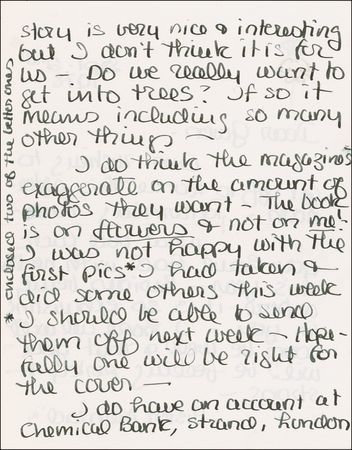 story is very nice & interesting
but I don't think it is for
us – Do we really want to
get into trees? If so it
means including so many
other things –
I do think the magazines
exaggerate on the amount of
photos they want – The book
is on flowers & not on me!
I was not happy with the
first pics* I had taken &
did some others this week
I should be able to send
them off next week – Hope-
fully one will be right for
the cover —
I do have an account at
Chemical Bank, Strand, London
* enclosed two of the better ones